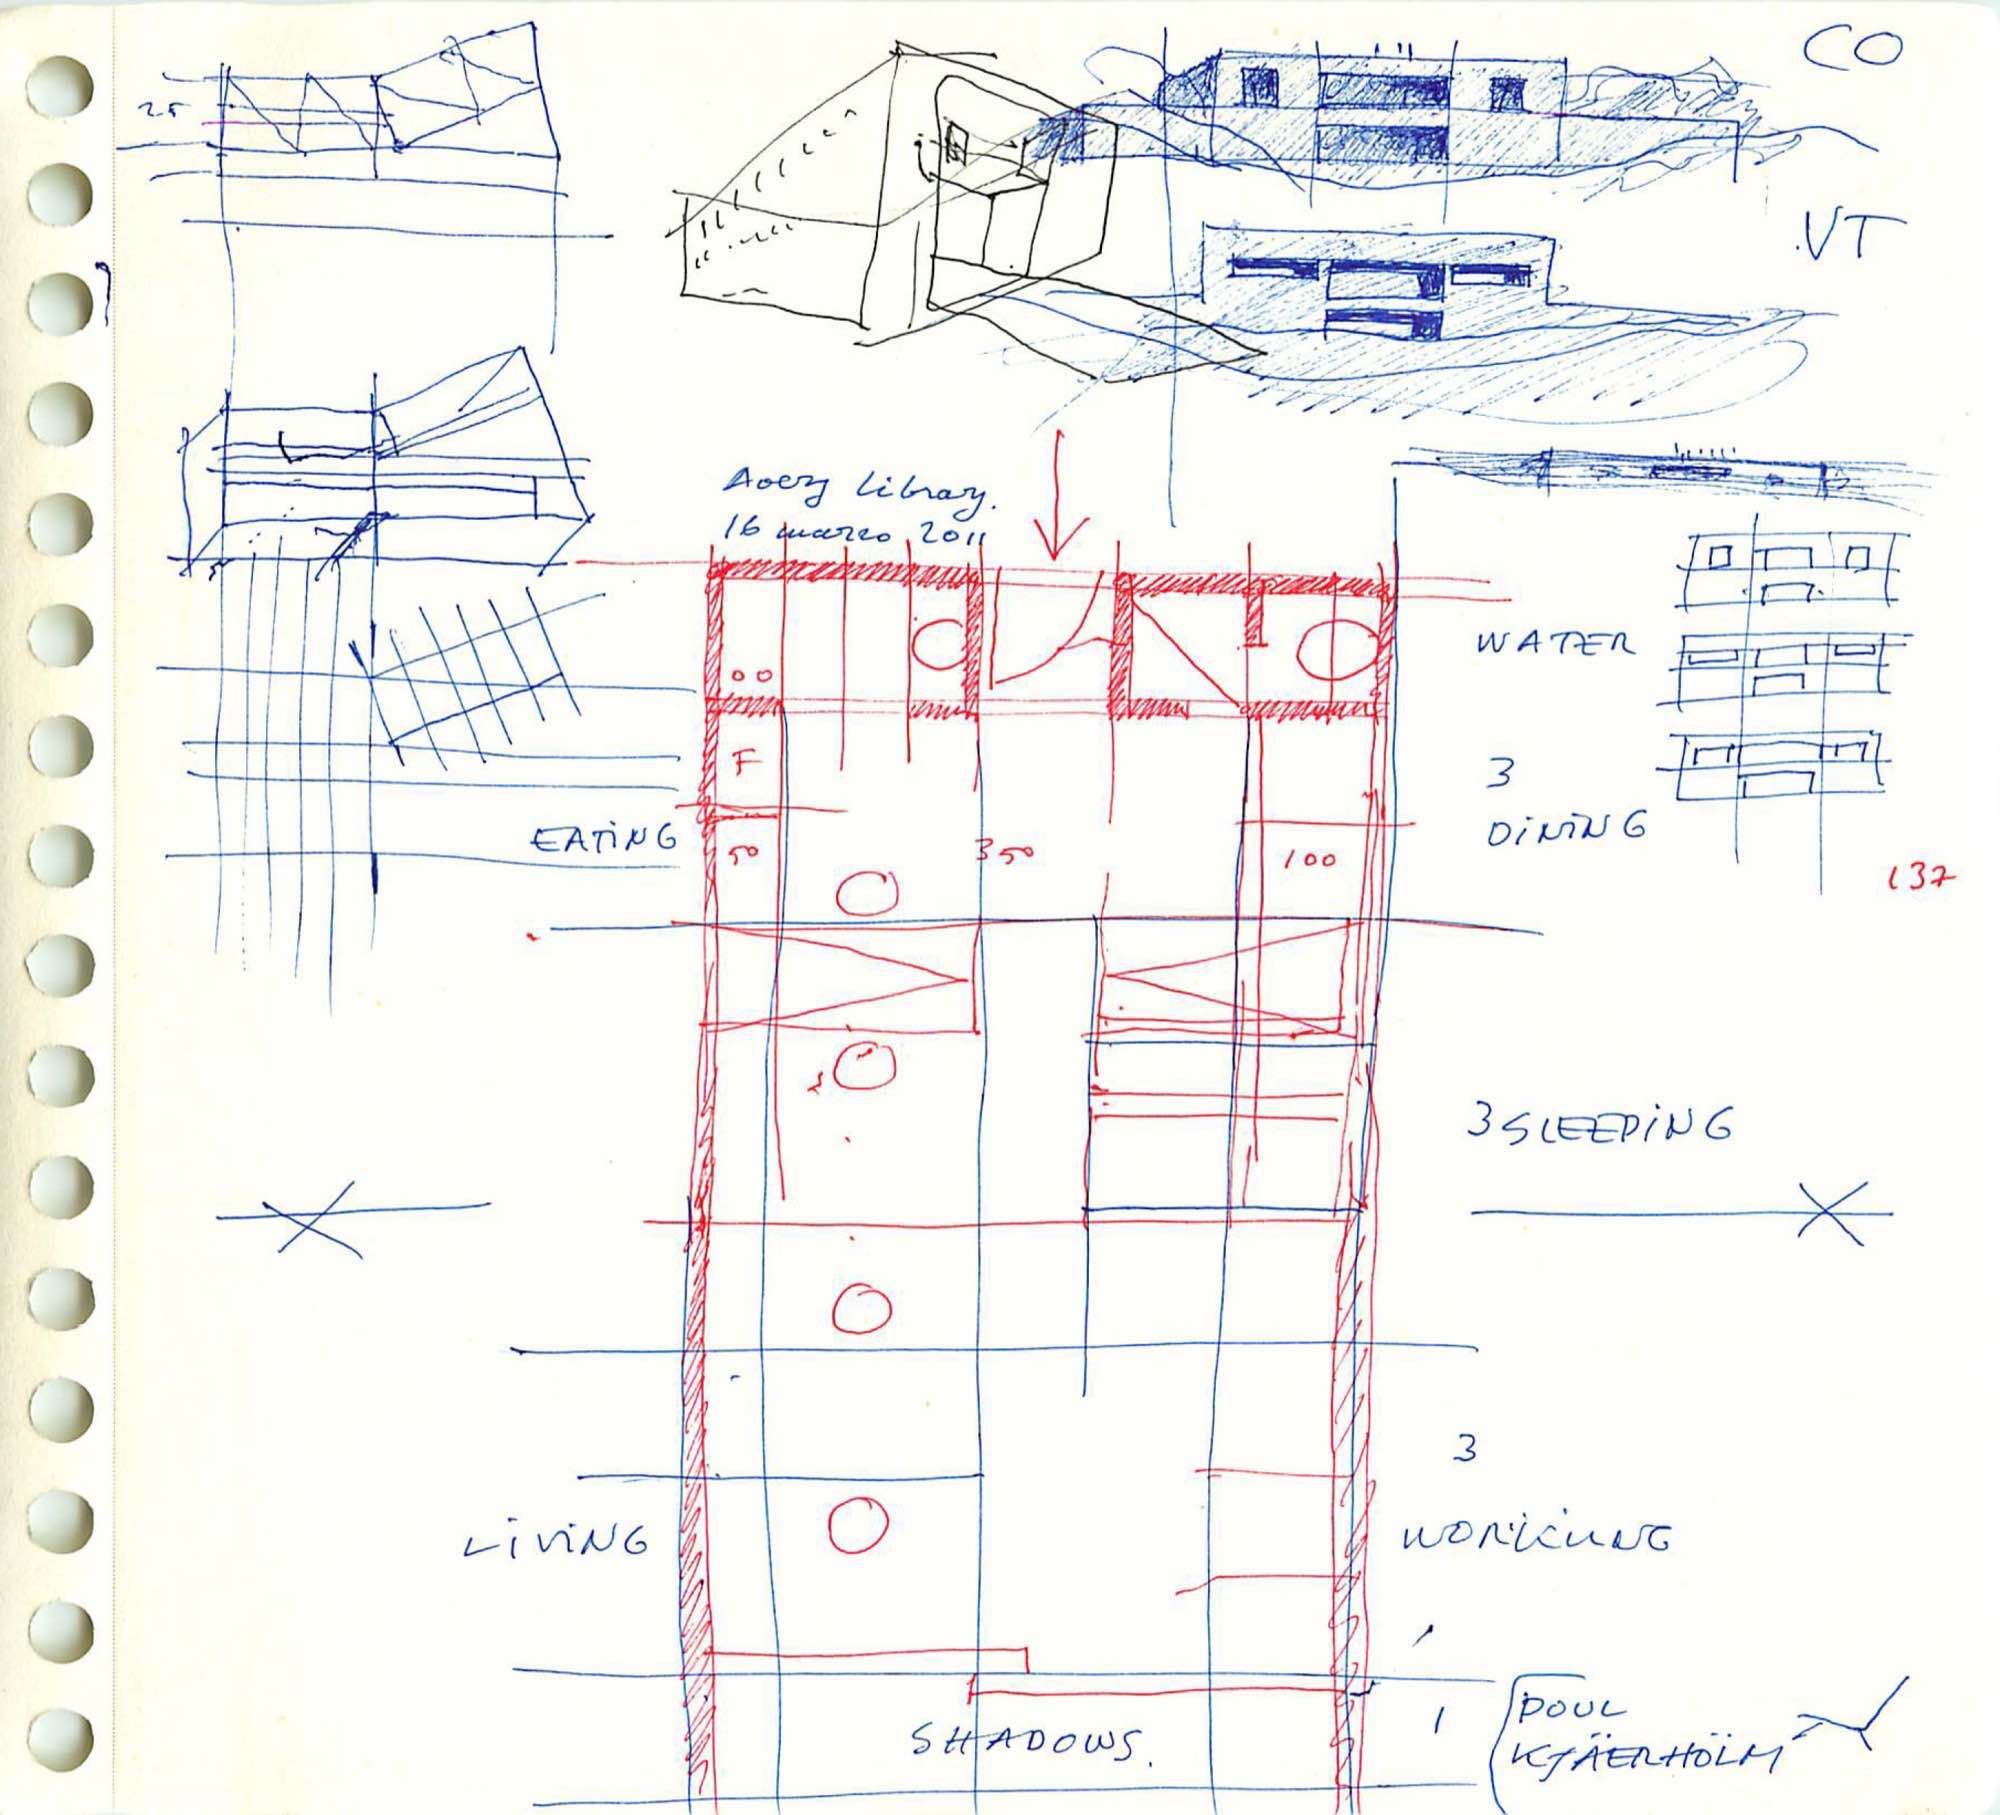 CO
25
VT
Avery Library.
16 marzo 2011
WATER
F
3
DINING
EATING
50
350
100
137
3 SLEEPING
3
LIVING
WORKING
SHADOWS.
1
POUL
KJÄERHÖLM